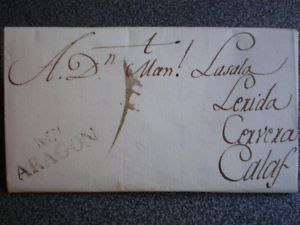 A Dn Manl Lasala
Lerida
Cervera
Calaf
ARAGON